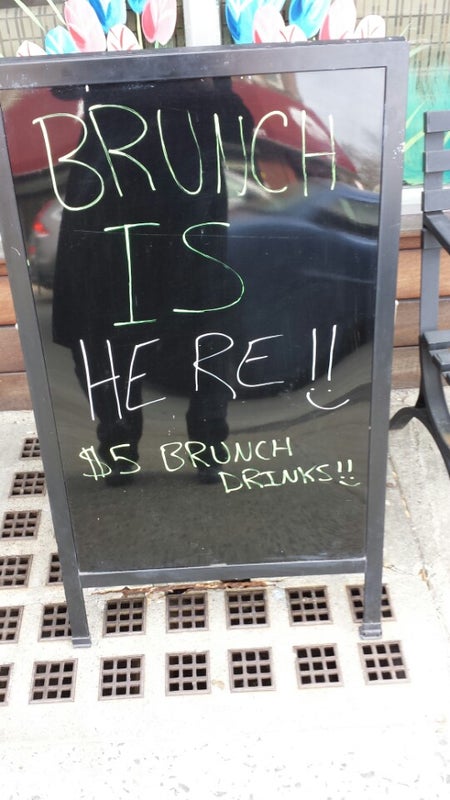 BRUNCH
IS
HERE!!
$5 BRUNCH
DRINKS!!